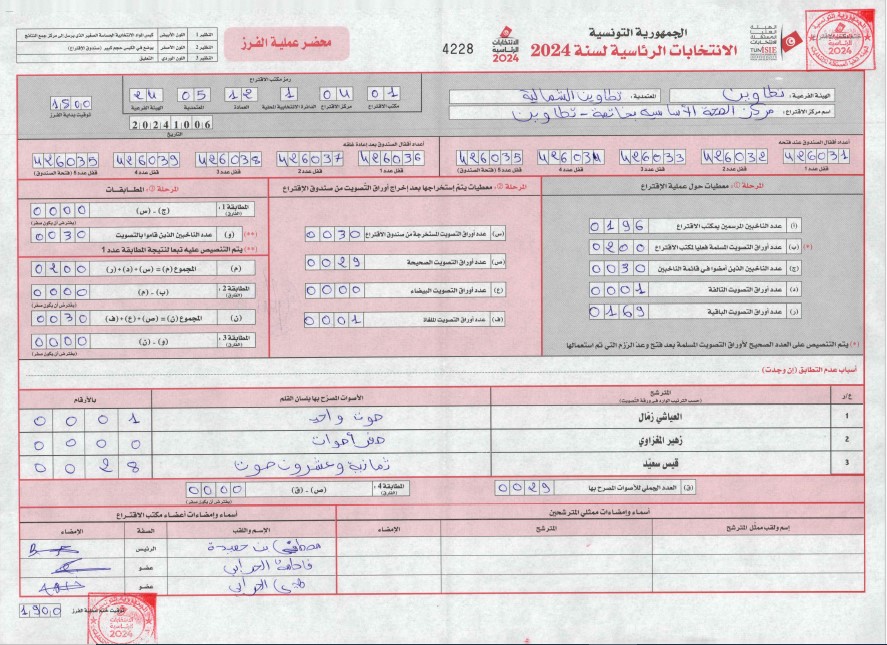 الجمهورية التونسية
الانتخابات الرئاسية لسنة 2024
الانتخابات الرئاسية 2024
4228
محضر عملية الفرز
النظير 1 اللون الأبيض
النظير 2 اللون الأصفر يوضع في الكيس حجم كبير (صندوق الإقتراع)
النظير 3 اللون الوردي التعليق
الهيئة الفرعية: تطاوين المعتمدية: تطاوين الشمالية
اسم مركز الإقتراع: مركز الصحة الأساسية - تطاوين
رمز مكتب الإقتراع
01 04 1 12 05 24
مكتب الإقتراع مركز الإقتراع الدائرة الانتخابية المحلية العمادة المعتمدية الهيئة الفرعية
1500
توقيت بداية الفرز
20241006
التاريخ
أعداد أقفال الصندوق عند فتحه
426031 426032 426033 426034 426035
قفل عدد 1 قفل عدد 2 قفل عدد 3 قفل عدد 4 قفل عدد 5 (فتحة الصندوق)
أعداد أقفال الصندوق بعد إعادة غلقه
426036 426037 426038 426039 426035
قفل عدد 1 قفل عدد 2 قفل عدد 3 قفل عدد 4 قفل عدد 5 (فتحة الصندوق)
المرحلة 1: معطيات حول عملية الإقتراع
(أ) عدد الناخبين المرسمين بمكتب الإقتراع 0196
(*) (ب) عدد أوراق التصويت المسلمة فعليا لمكتب الاقتراع 0200
(ج) عدد الناخبين الذين أمضوا في قائمة الناخبين 0030
(د) عدد أوراق التصويت التالفة 0001
(ر) عدد أوراق التصويت الباقية 0169
(*) يتم التنصيص على العدد الصحيح لأوراق التصويت المسلمة بعد فتح وعد الرزم التي تم استعمالها
المرحلة 2: معطيات يتم إستخراجها بعد إخراج أوراق التصويت من صندوق الإقتراع
(س) عدد أوراق التصويت المستخرجة من صندوق الاقتراع 0030
(ص) عدد أوراق التصويت الصحيحة 0029
(ع) عدد أوراق التصويت البيضاء 0000
(ف) عدد أوراق التصويت الملغاة 0001
المرحلة 3: المطابقات
المطابقة 1: (الفارق) (ج) - (س) 0000
(يفترض أن يكون صفر)
(**) (و) عدد الناخبين الذين قاموا بالتصويت 0030
(**) يتم التنصيص عليه تبعا لنتيجة المطابقة عدد 1
(م) المجموع (م) = (س) + (د) + (ر) 0200
المطابقة 2: (الفارق) (ب) - (م) 0000
(يفترض أن يكون صفر)
(ن) المجموع (ن) = (ص) + (ع) + (ف) 0030
المطابقة 3: (الفارق) (و) - (ن) 0000
(يفترض أن يكون صفر)
أسباب عدم التطابق (إن وجدت)
ع/ر المترشح الأصوات المصرح بها بلسان القلم بالأرقام
(حسب الترتيب الوارد في ورقة التصويت)
1 العياشي زمّال صوت واحد 0001
2 زهير المغزاوي صفر أصوات 0000
3 قيس سعيّد ثمانية وعشرون صوت 0028
(ق) العدد الجملي للأصوات المصرح بها 0029
المطابقة 4: (الفارق) (ص) - (ق) 0000
(يفترض أن يكون صفر)
أسماء وإمضاءات ممثلي المترشحين
إسم ولقب ممثل المترشح المترشح الإمضاء
أسماء وإمضاءات أعضاء مكتب الإقتراع
الإسم واللقب الصفة الإمضاء
الرئيس
فاطمة عضو
عضو
توقيت ختم عملية الفرز 1900